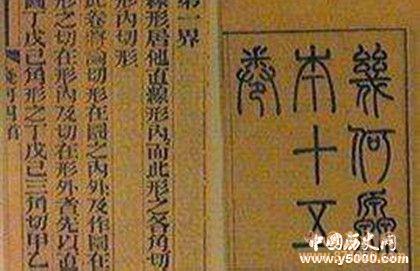 幾何原
本十五
卷
第一界
直線形居他直線形內而此形之各角切
形內切形
此卷將論切形在圜之內外及作圜在
形之切在形內及切在形外者先以直
圖丁戊己角形之丁戊己三角切甲乙
中国历史网
www.y5000.com